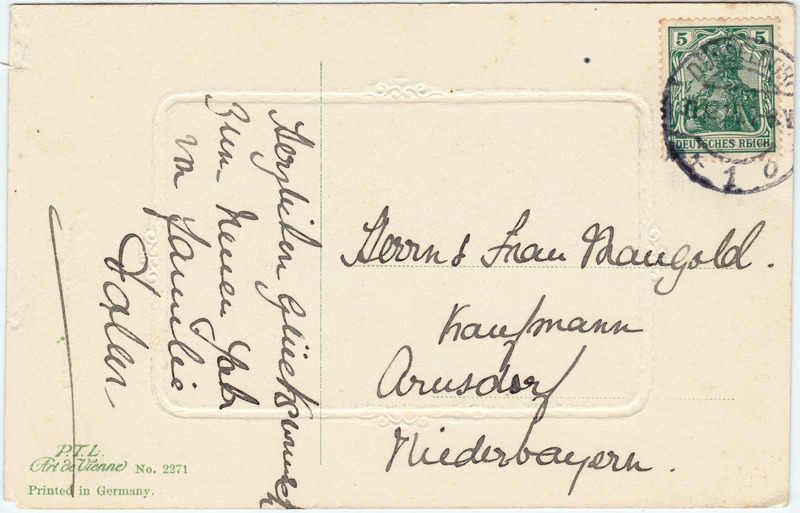 Herzlichen Glückwunsch
Zum Neuen Jahr
von Familie
5 5
DEUTSCHES REICH
1 b
Herrn & Frau Mangold.
Kaufmann
Arnsdorf
Niederbayern.
P.T.L.
Art de Vienne No. 2271
Printed in Germany.